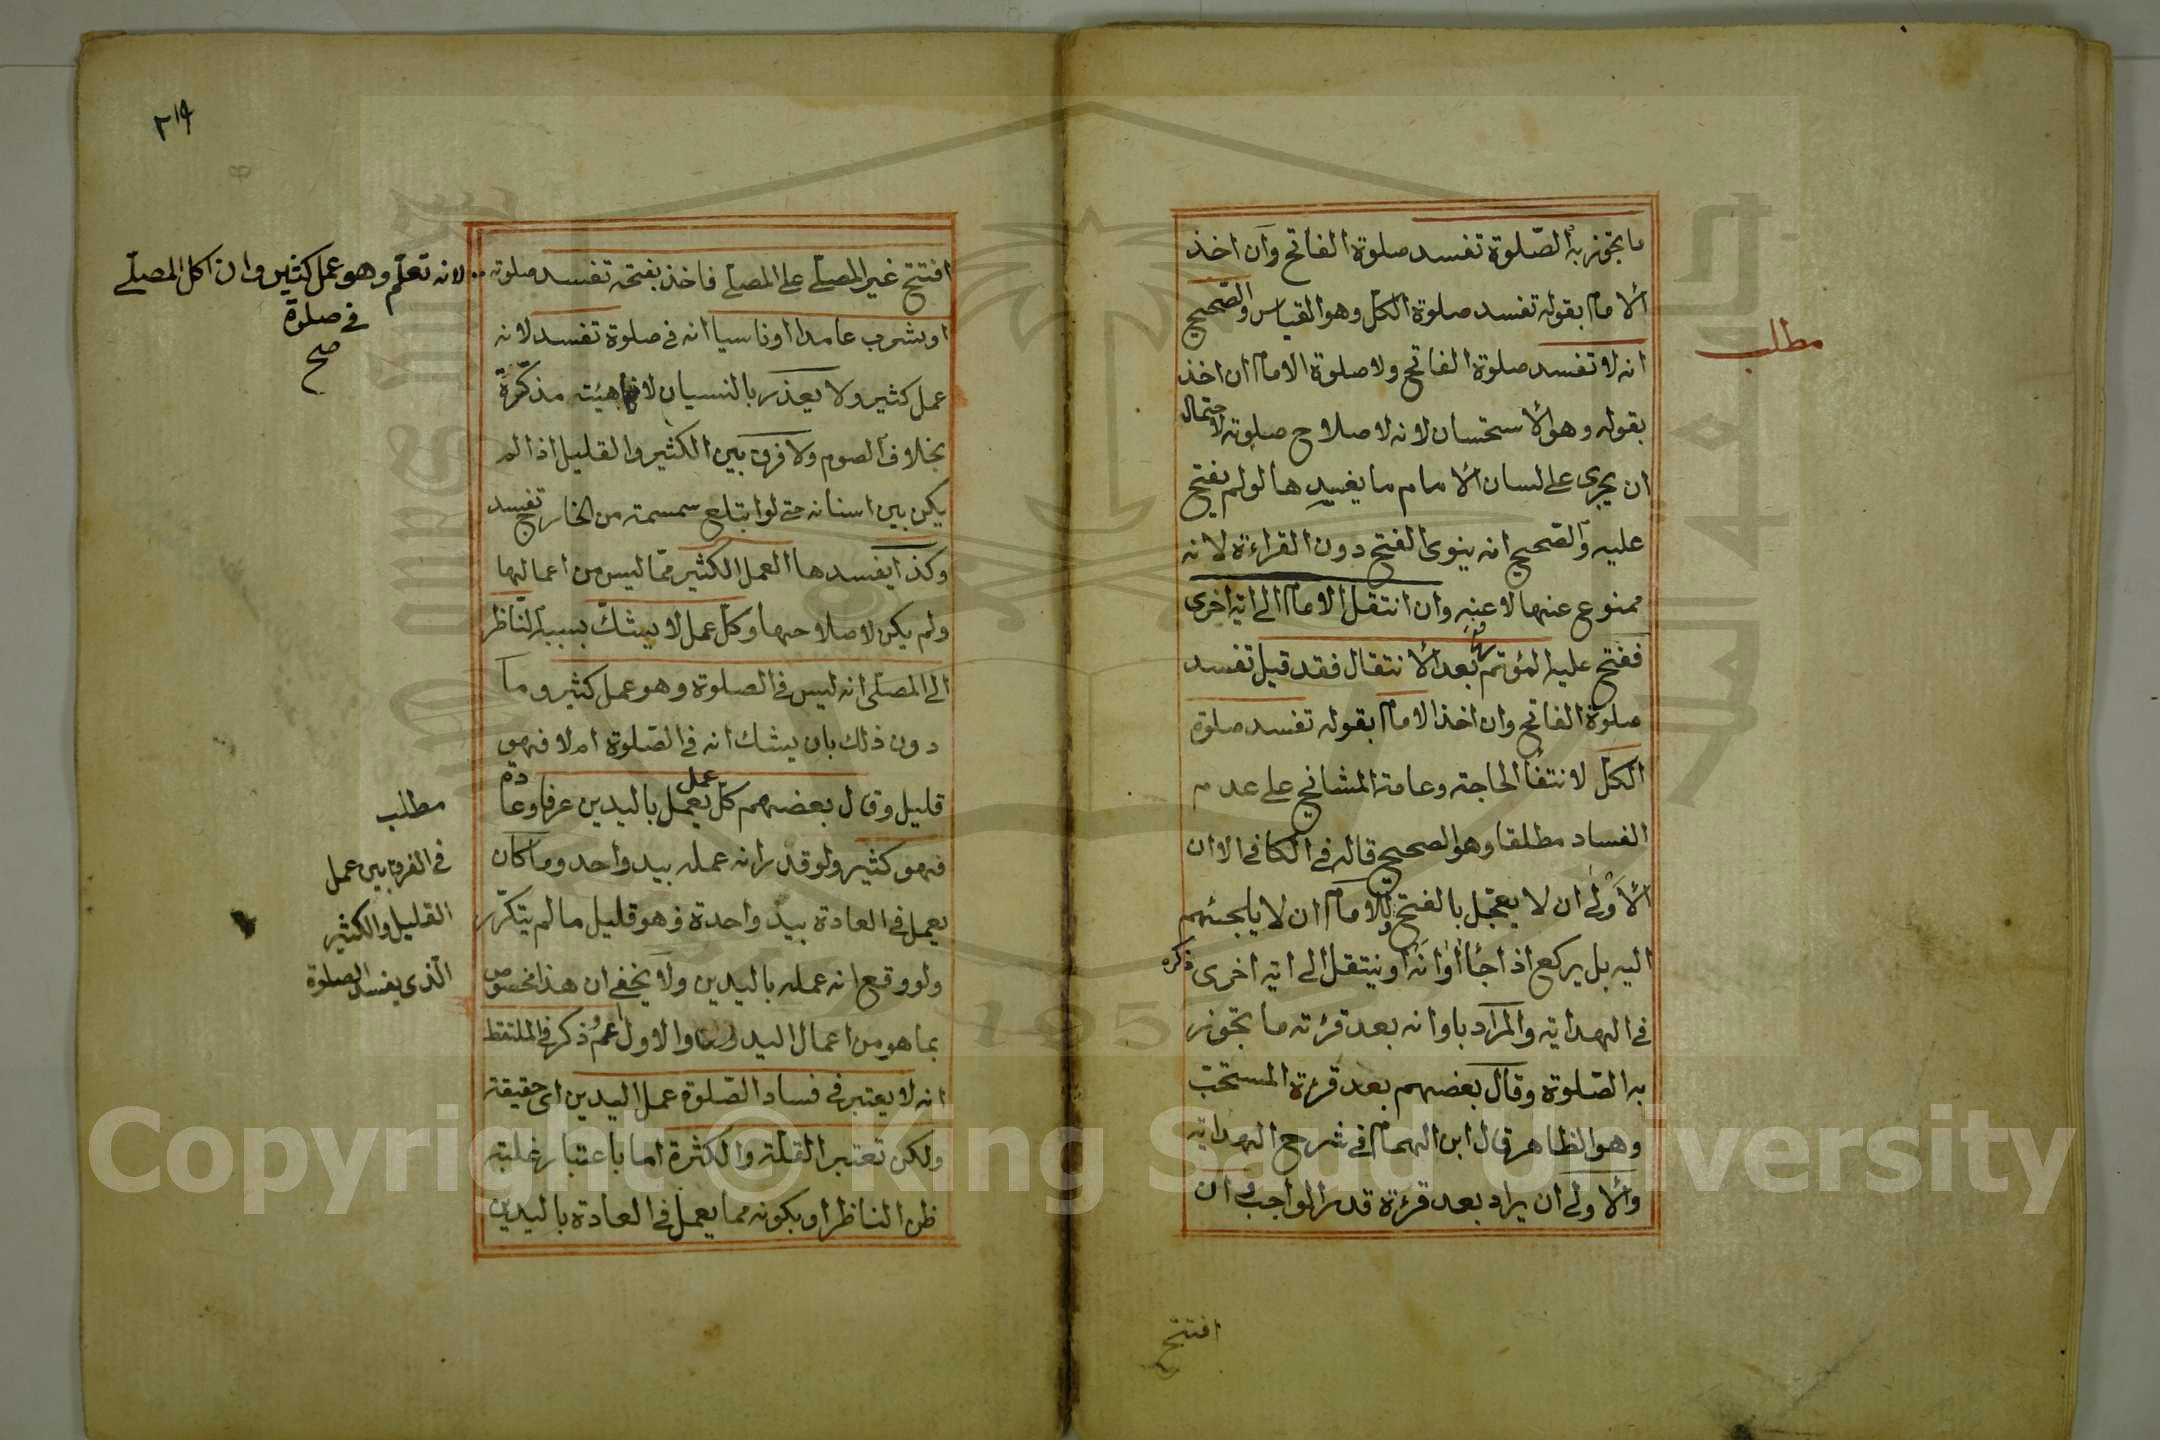 ما يجوز به الصّلوة تفسد صلوة الفاتح وان اخذ
الامام بقوله تفسد صلوة الكل وهو القياس والصّحيح
مطلب
انه لا تفسد صلوة الفاتح ولا صلوة الامام ان اخذ
بقوله وهو الاستحسان لانه لاصلاح صلوته لاحتمال
ان يجرى على لسان الامام ما يفسدها لو لم يفتح
عليه والصّحيح انه ينوى الفتح دون القراءة لانه
ممنوع عنها لا عنه وان انتقل الامام الى اية اخرى
ففتح عليه المؤتم بعد الانتقال فقد قيل تفسد
صلوة الفاتح وان اخذ الامام بقوله تفسد صلوة
الكلّ لانتفأ الحاجة وعامة المشايخ على عدم
الفساد مطلقا وهو الصحيح قاله فى الكافى الا ان
الاولى ان لا يعجل بالفتح وللامام ان لا يلجئهم
اليه بل يركع اذا جأ اوانه او ينتقل الى اية اخرى ذكره
فى الهداية والمراد باوانه بعد قرئة ما يجوز
به الصّلوة وقال بعضهم بعد قرئة المستحبّ
وهو الظاهر قال ابن الهمام فى شرح الهداية
والاولى ان يراد بعد قرئة قدر الواجب وان
افتتح
٢١٩
افتتح غير المصلّى على المصلى فاخذ بفتحه تفسد صلوته
لانه تعلّم وهو عمل كثير وان اكل المصلّى
فى صلوة
صح
او شرب عامدا او ناسيا انه فى صلوة تفسد لانه
عمل كثير ولا يعذر بالنسيان لان هيئته مذكّرة
بخلاف الصوم ولا فرق بين الكثير والقليل اذا لم
يكن بين اسنانه حتى لو ابتلع سمسمة من الخارج تفسد
وكذا يفسدها العمل الكثير ممّا ليس من اعمالها
ولم يكن لاصلاحها وكلّ عمل لا يشكّ بسببه النّاظر
الى المصلّى انه ليس فى الصلوة وهو عمل كثير وما
دون ذلك بان يشك انه فى الصّلوة ام لا فهو
قليل وقال بعضهم كلّ عمل يعمل باليدين عرفا وعادة
فهو كثير ولو قدر انه عمله بيد واحد وما كان
يعمل فى العادة بيد واحدة فهو قليل ما لم يتكرّر
ولو وقع انه عمله باليدين ولا يخفى ان هذا مخصوص
بما هو من اعمال اليد والاول اعم وذكر فى الملتقط
انه لا يعتبر فى فساد الصّلوة عمل اليدين اى حقيقة
ولكن تعتبر القلّة والكثرة اما باعتبار غلبة
ظن الناظر او بكونه مما يعمل فى العادة باليدين
مطلب
فى الفرق بين عمل
القليل والكثير
الّذى يفسد الصلوة
Copyright © King Saud University
1957